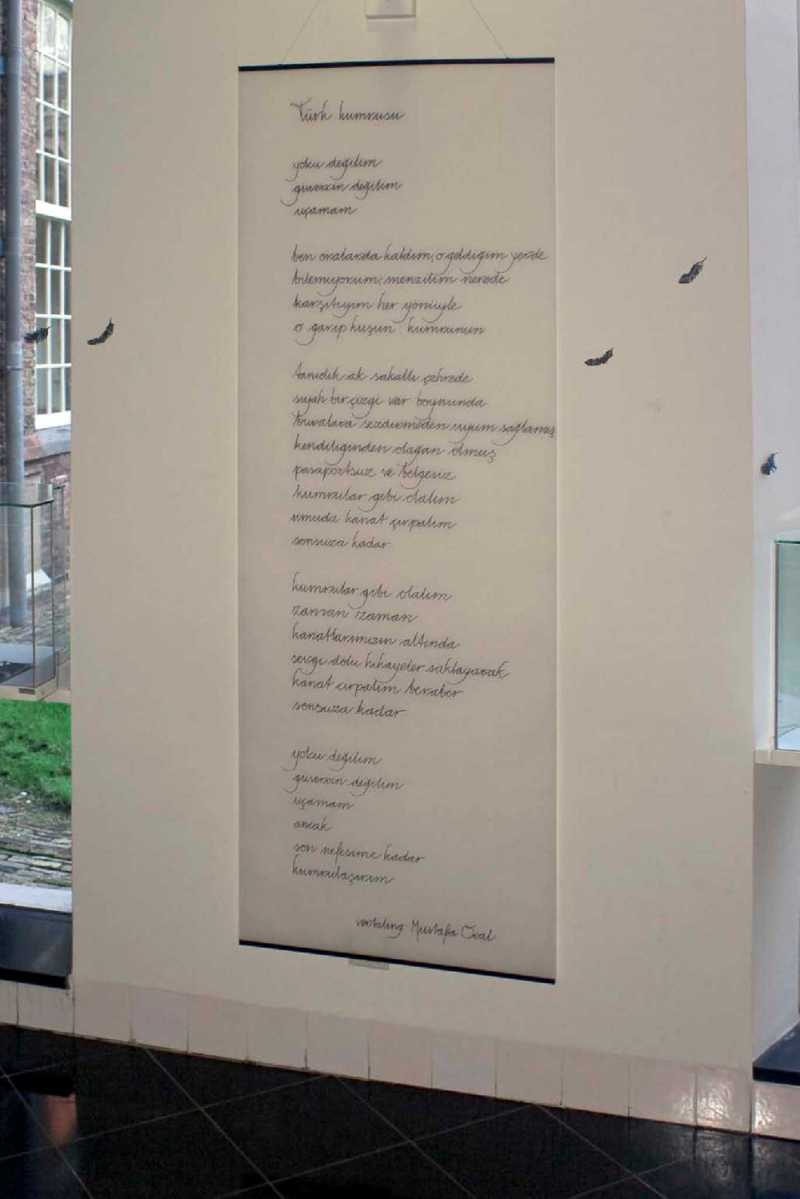 Türk kumrusu
yolcu değilim
güvercin değilim
uçamam
ben oralarda kaldım, o geldiğim yerde
bilemiyorum, menzilim nerede
karşıtıyım her yönüyle
o garip kuşun kumrunun
tanıdık ak sakallı çehrede
siyah bir çizgi var boynunda
buralara sezdirmeden uyum sağlamış
kendiliğinden olağan olmuş
pasaportsuz ve belgesiz
kumrular gibi olalım
umuda kanat çırpalım
sonsuza kadar
kumrular gibi olalım
zaman zaman
kanatlarımızın altında
sevgi dolu hikayeler saklayarak
kanat çırpalım beraber
sonsuza kadar
yolcu değilim
güvercin değilim
uçamam
ancak
son nefesime kadar
kumrulaşırım
vertaling Mustafa